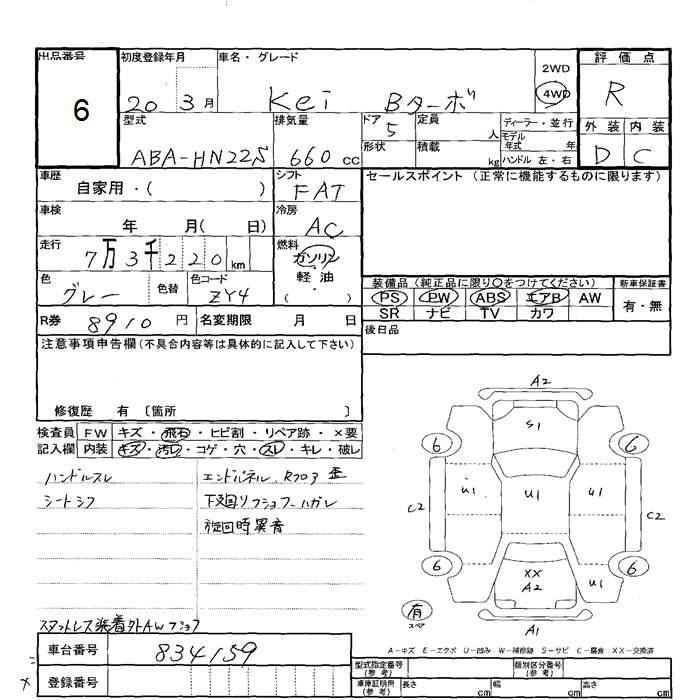 出品番号 6
初度登録年月 20 3月
車名・グレード Kei Bターボ
2WD
4WD
評価点 R
型式 ABA-HN22S
排気量 660cc
ドア 5
形状
定員 人
積載 kg
ディーラー・並行
モデル年式 年
ハンドル 左・右
外装 内装
D C
車歴 自家用・( )
シフト FAT
セールスポイント (正常に機能するものに限ります)
車検 年 月( 日)
冷房 AC
走行 7万3千220km
燃料 ガソリン
軽油
・( )
色 グレー
色替
色コード ZY4
装備品 (純正品に限り○をつけてください)
新車保証書
PS PW ABS エアB AW
有・無
SR ナビ TV カワ
R券 8910円
名変期限 月 日
後日品
注意事項申告欄(不具合内容等は具体的に記入して下さい)
修復歴 有〔箇所 〕
検査員 FW キズ・飛石・ヒビ割・リペア跡・×要
記入欄 内装 キズ・汚レ・コゲ・穴・スレ・キレ・破レ
ハンドルスレ
シートシワ
エンドパネル、Rフロア 歪
下回りフショクーハガレ
旋回時異音
スタットレス装着外AWフショク
A2
S1
6 6
U1 U1 U1
C2 C2
6 6
XX
A2
U1
有
スペア
A1
A-キズ E-エクボ U-凹み W-補修跡 S-サビ C-腐食 XX-交換済
車台番号 834159
登録番号
型式指定番号(参考)
類別区分番号(参考)
車庫証明用(参考) 長さ cm 幅 cm 高さ cm